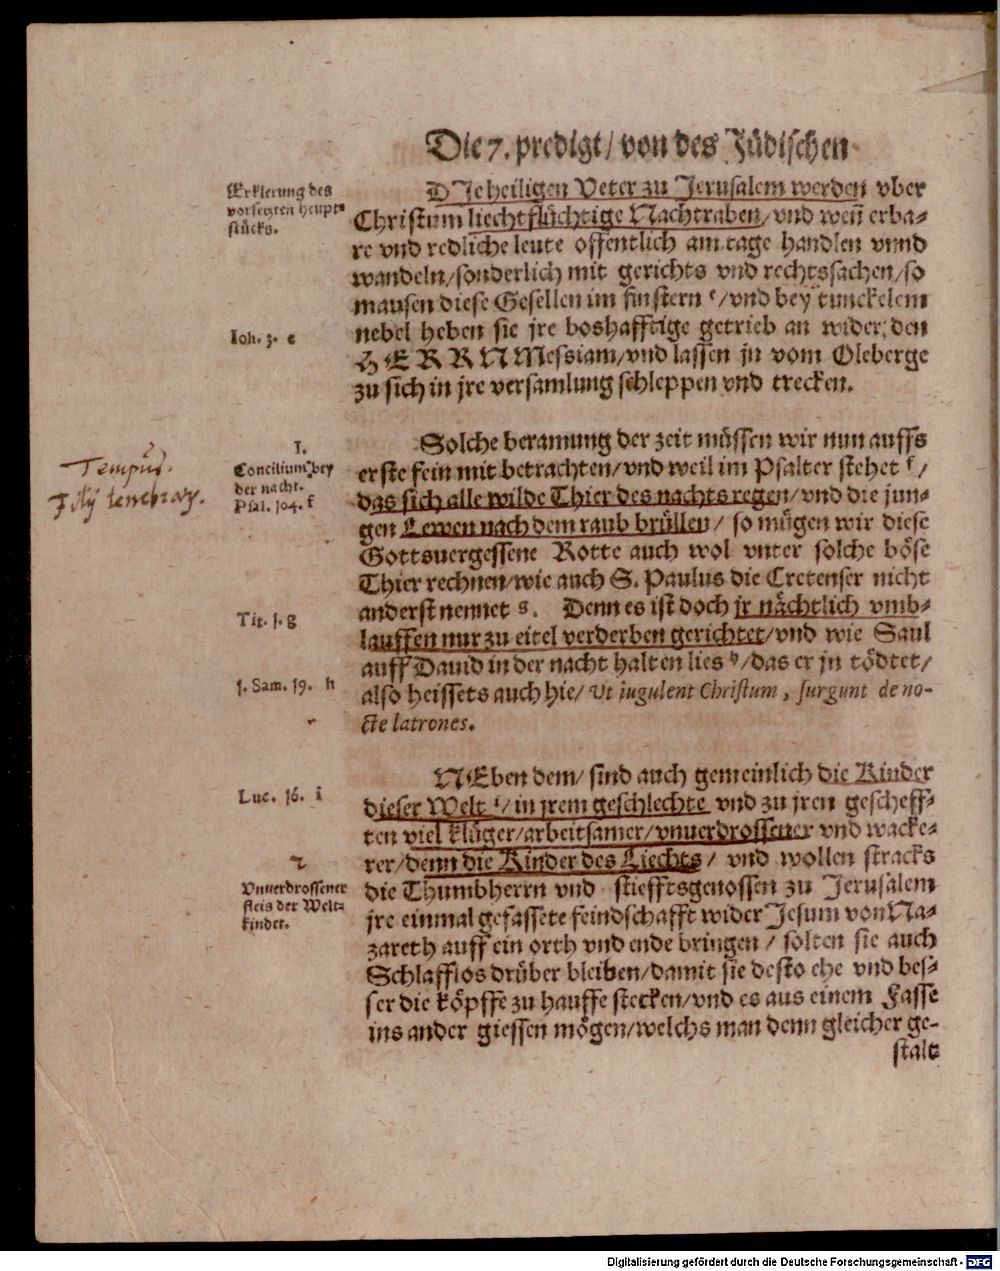 Die 7. predigt / von des Jüdischen
Erklerung des
vorsetzten heupt=
stücks.
DIe heiligen Veter zu Jerusalem werden vber
Christum liechtflüchtige Nachtraben / vnd weñ erba=
re vnd redliche leute offentlich am tage handlen vnnd
wandeln / sonderlich mit gerichts vnd rechtssachen / so
mausen diese Gesellen im finstern e / vnd bey tunckelem
Ioh. 3. e
nebel heben sie jre boshafftige getrieb an wider den
HERRN Messiam / vnd lassen jn vom Oleberge
zu sich in jre versamlung schleppen vnd trecken.
Solche beramung der zeit müssen wir nun auffs
1.
Concilium bey
der nacht.
Psal. 104. f
Tempus.
Filij tenebrar.
erste fein mit betrachten / vnd weil im Psalter stehet f /
das sich alle wilde Thier des nachts regen / vnd die jun=
gen Lewen nach dem raub brüllen / so mügen wir diese
Gottsuergessene Rotte auch wol vnter solche böse
Thier rechnen / wie auch S. Paulus die Cretenser nicht
Tit. 1. g
anderst nennet g. Denn es ist doch jr nächtlich vmb=
lauffen nur zu eitel verderben gerichtet / vnd wie Saul
auff Dauid in der nacht halten lies h / das er jn tödtet /
1. Sam. 19. h
also heissets auch hie / Vt iugulent Christum, surgunt de no-
cte latrones.
NEben dem / sind auch gemeinlich die Kinder
Luc. 16. i
dieser Welt i / in jrem geschlechte vnd zu jren gescheff=
ten viel klüger / arbeitsamer / vnuerdrossener vnd wacke=
rer / denn die Kinder des Liechts / vnd wollen stracks
2
Vnuerdrossener
fleis der Welt=
kinder.
die Thumbherrn vnd stiefftsgenossen zu Jerusalem
jre einmal gefassete feindschafft wider Jesum von Na=
zareth auff ein orth vnd ende bringen / solten sie auch
Schlafflos drüber bleiben / damit sie desto ehe vnd bes=
ser die köpffe zu hauffe stecken / vnd es aus einem Fasse
ins ander giessen mögen / welchs man denn gleicher ge-
stalt
Digitalisierung gefördert durch die Deutsche Forschungsgemeinschaft - DFG